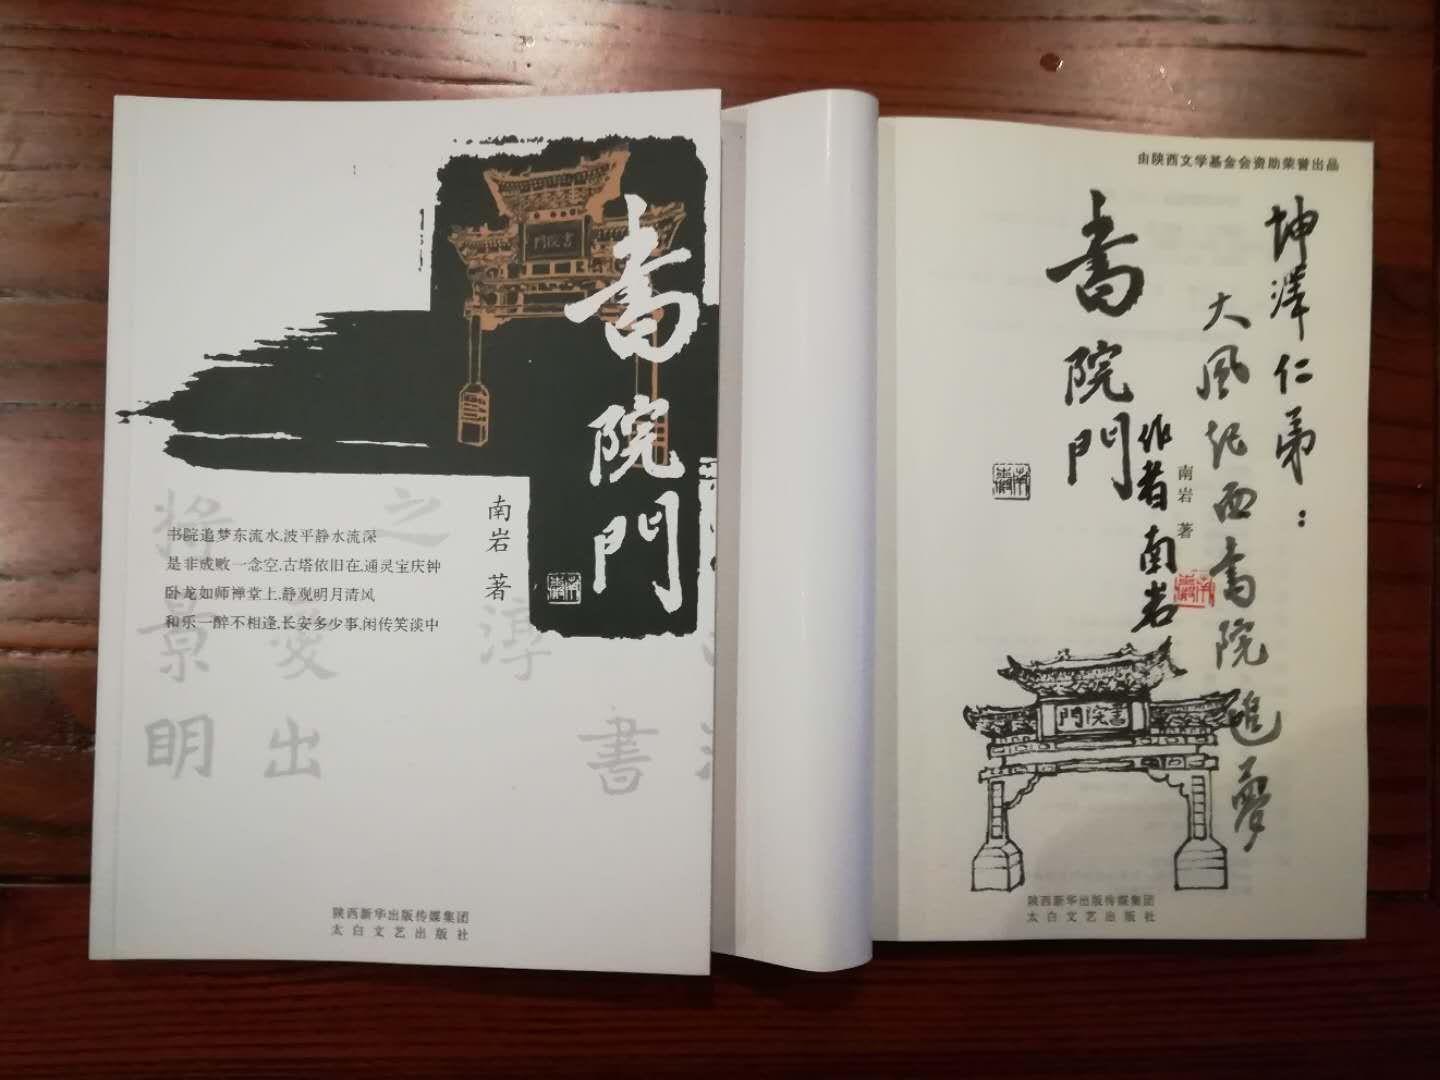 書院門
書院門
南岩 著
书院追梦东流水,波平静水流深
是非成败一念空,古塔依旧在,通灵宝庆钟
卧龙如师禅堂上,静观明月清风
和乐一醉不相逢,长安多少事,闲传笑谈中
将 之
景 爱 淳
明 出 書
陕西新华出版传媒集团
太白文艺出版社
由陕西文学基金会资助荣誉出品
坤澤仁弟：
大风起西書院追夢
書院門
南岩 著
作者南岩
書院門
陕西新华出版传媒集团
太白文艺出版社